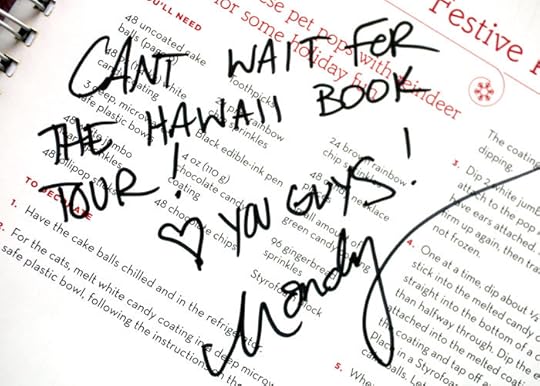 CANT WAIT FOR
THE HAWAII BOOK
TOUR!
♡ YOU GUYS!
Mandy
Festive
these pet pops with reindeer
for some holiday fun
YOU'LL NEED
48 uncoated cake
balls
3 deep, microwave-
safe plastic bowls
48 jumbo
48 lollipop
Toothpicks
rainbow
chip sprinkles
Black edible-ink pen
4 oz (110 g)
chocolate candy
coating
48 chocolate chips
24 brown rainbow
chip sprinkles
48
necklace
small amount of
green candy coating
96 gingerbread
sprinkles
Styrofoam block
TO DECORATE
1. Have the cake balls chilled and in the refrigerator.
2. For the cats, melt white candy coating in a deep microwave-
safe plastic bowl, following the instructions on the
The coating
dipping.
3. Dip 2 white jumbo
attach to the pop
have ears attached.
firm up again, then
not frozen.
4. One at a time, dip about ½
stick into the melted candy
straight into the bottom of a
than halfway through. Dip the
attached into the melted
the coating and tap off
Place in a Styrofoam
balls. Let
5. When